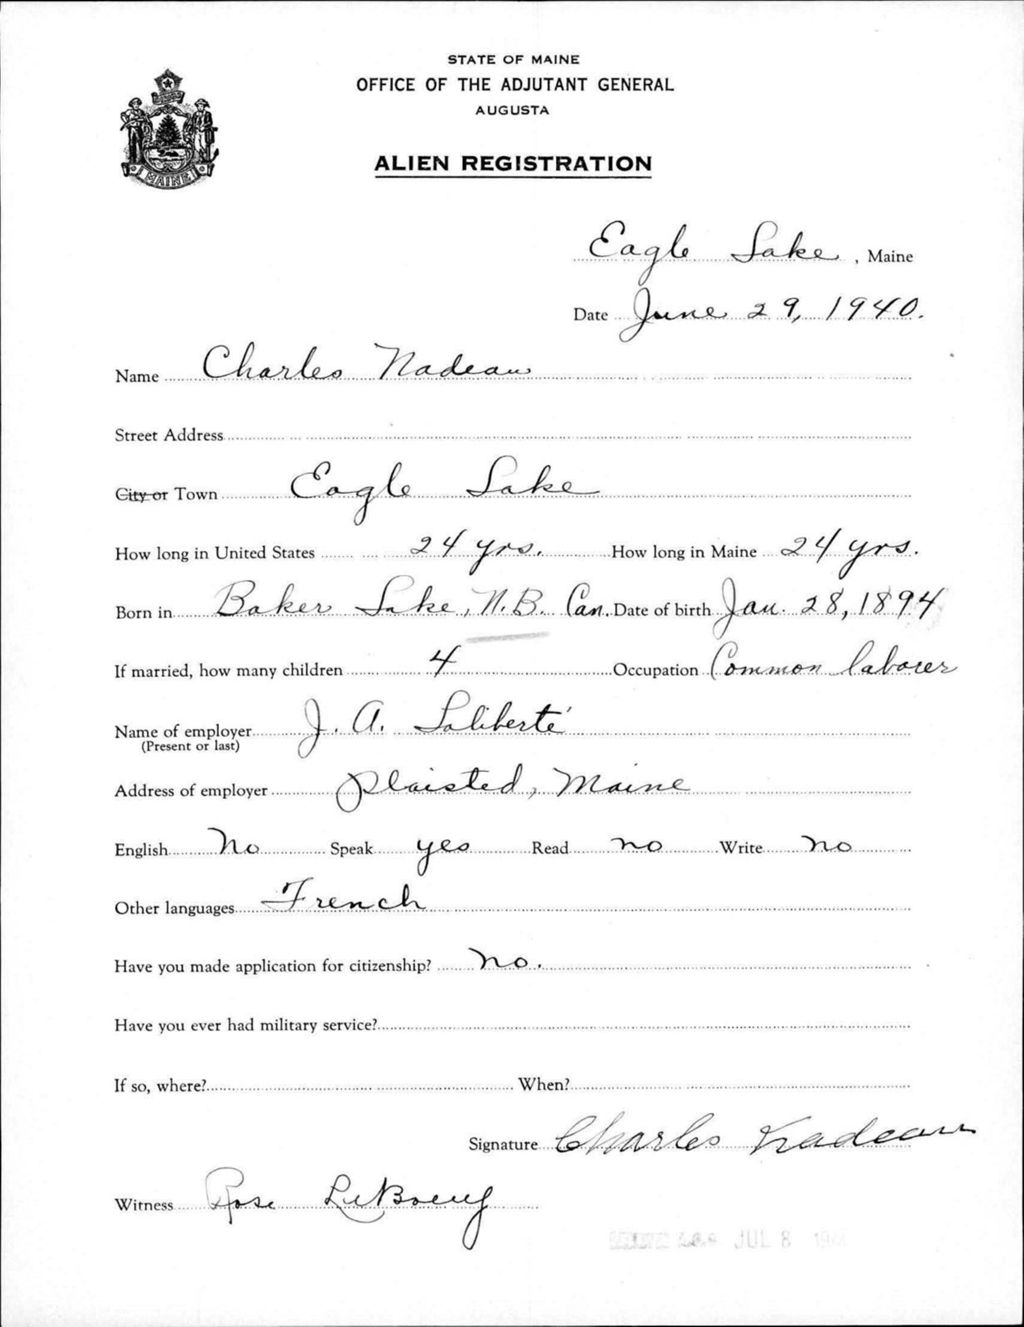 STATE OF MAINE
OFFICE OF THE ADJUTANT GENERAL
AUGUSTA
ALIEN REGISTRATION
MAINE
Eagle Lake, Maine
Date June 29, 1940.
Name Charles Nadeau
Street Address
City or Town Eagle Lake
How long in United States 24 yrs. How long in Maine 24 yrs.
Born in Baker Lake, N.B. Can. Date of birth Jan. 28, 1894
If married, how many children 4 Occupation Common laborer
Name of employer J. A. Laliberté
(Present or last)
Address of employer Plaisted, Maine
English No Speak yes Read no Write no
Other languages French
Have you made application for citizenship? no.
Have you ever had military service?
If so, where? When?
Signature Charles Nadeau
Witness Rose LeBoeuf
JUL 8